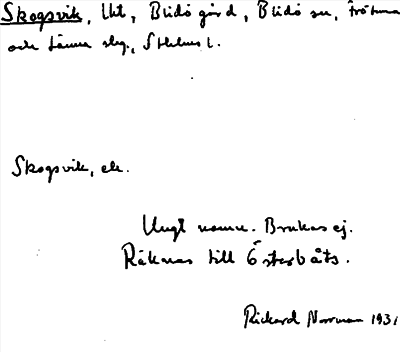 Skogsvik, Uht, Blidö gård, Blidö sn, Frötuna
och Länna skg., Sthlms l.
Skogsvik, ek.
Ungt namn. Brukas ej.
Räknas till Österbåts.
Rickard Norrman 1931